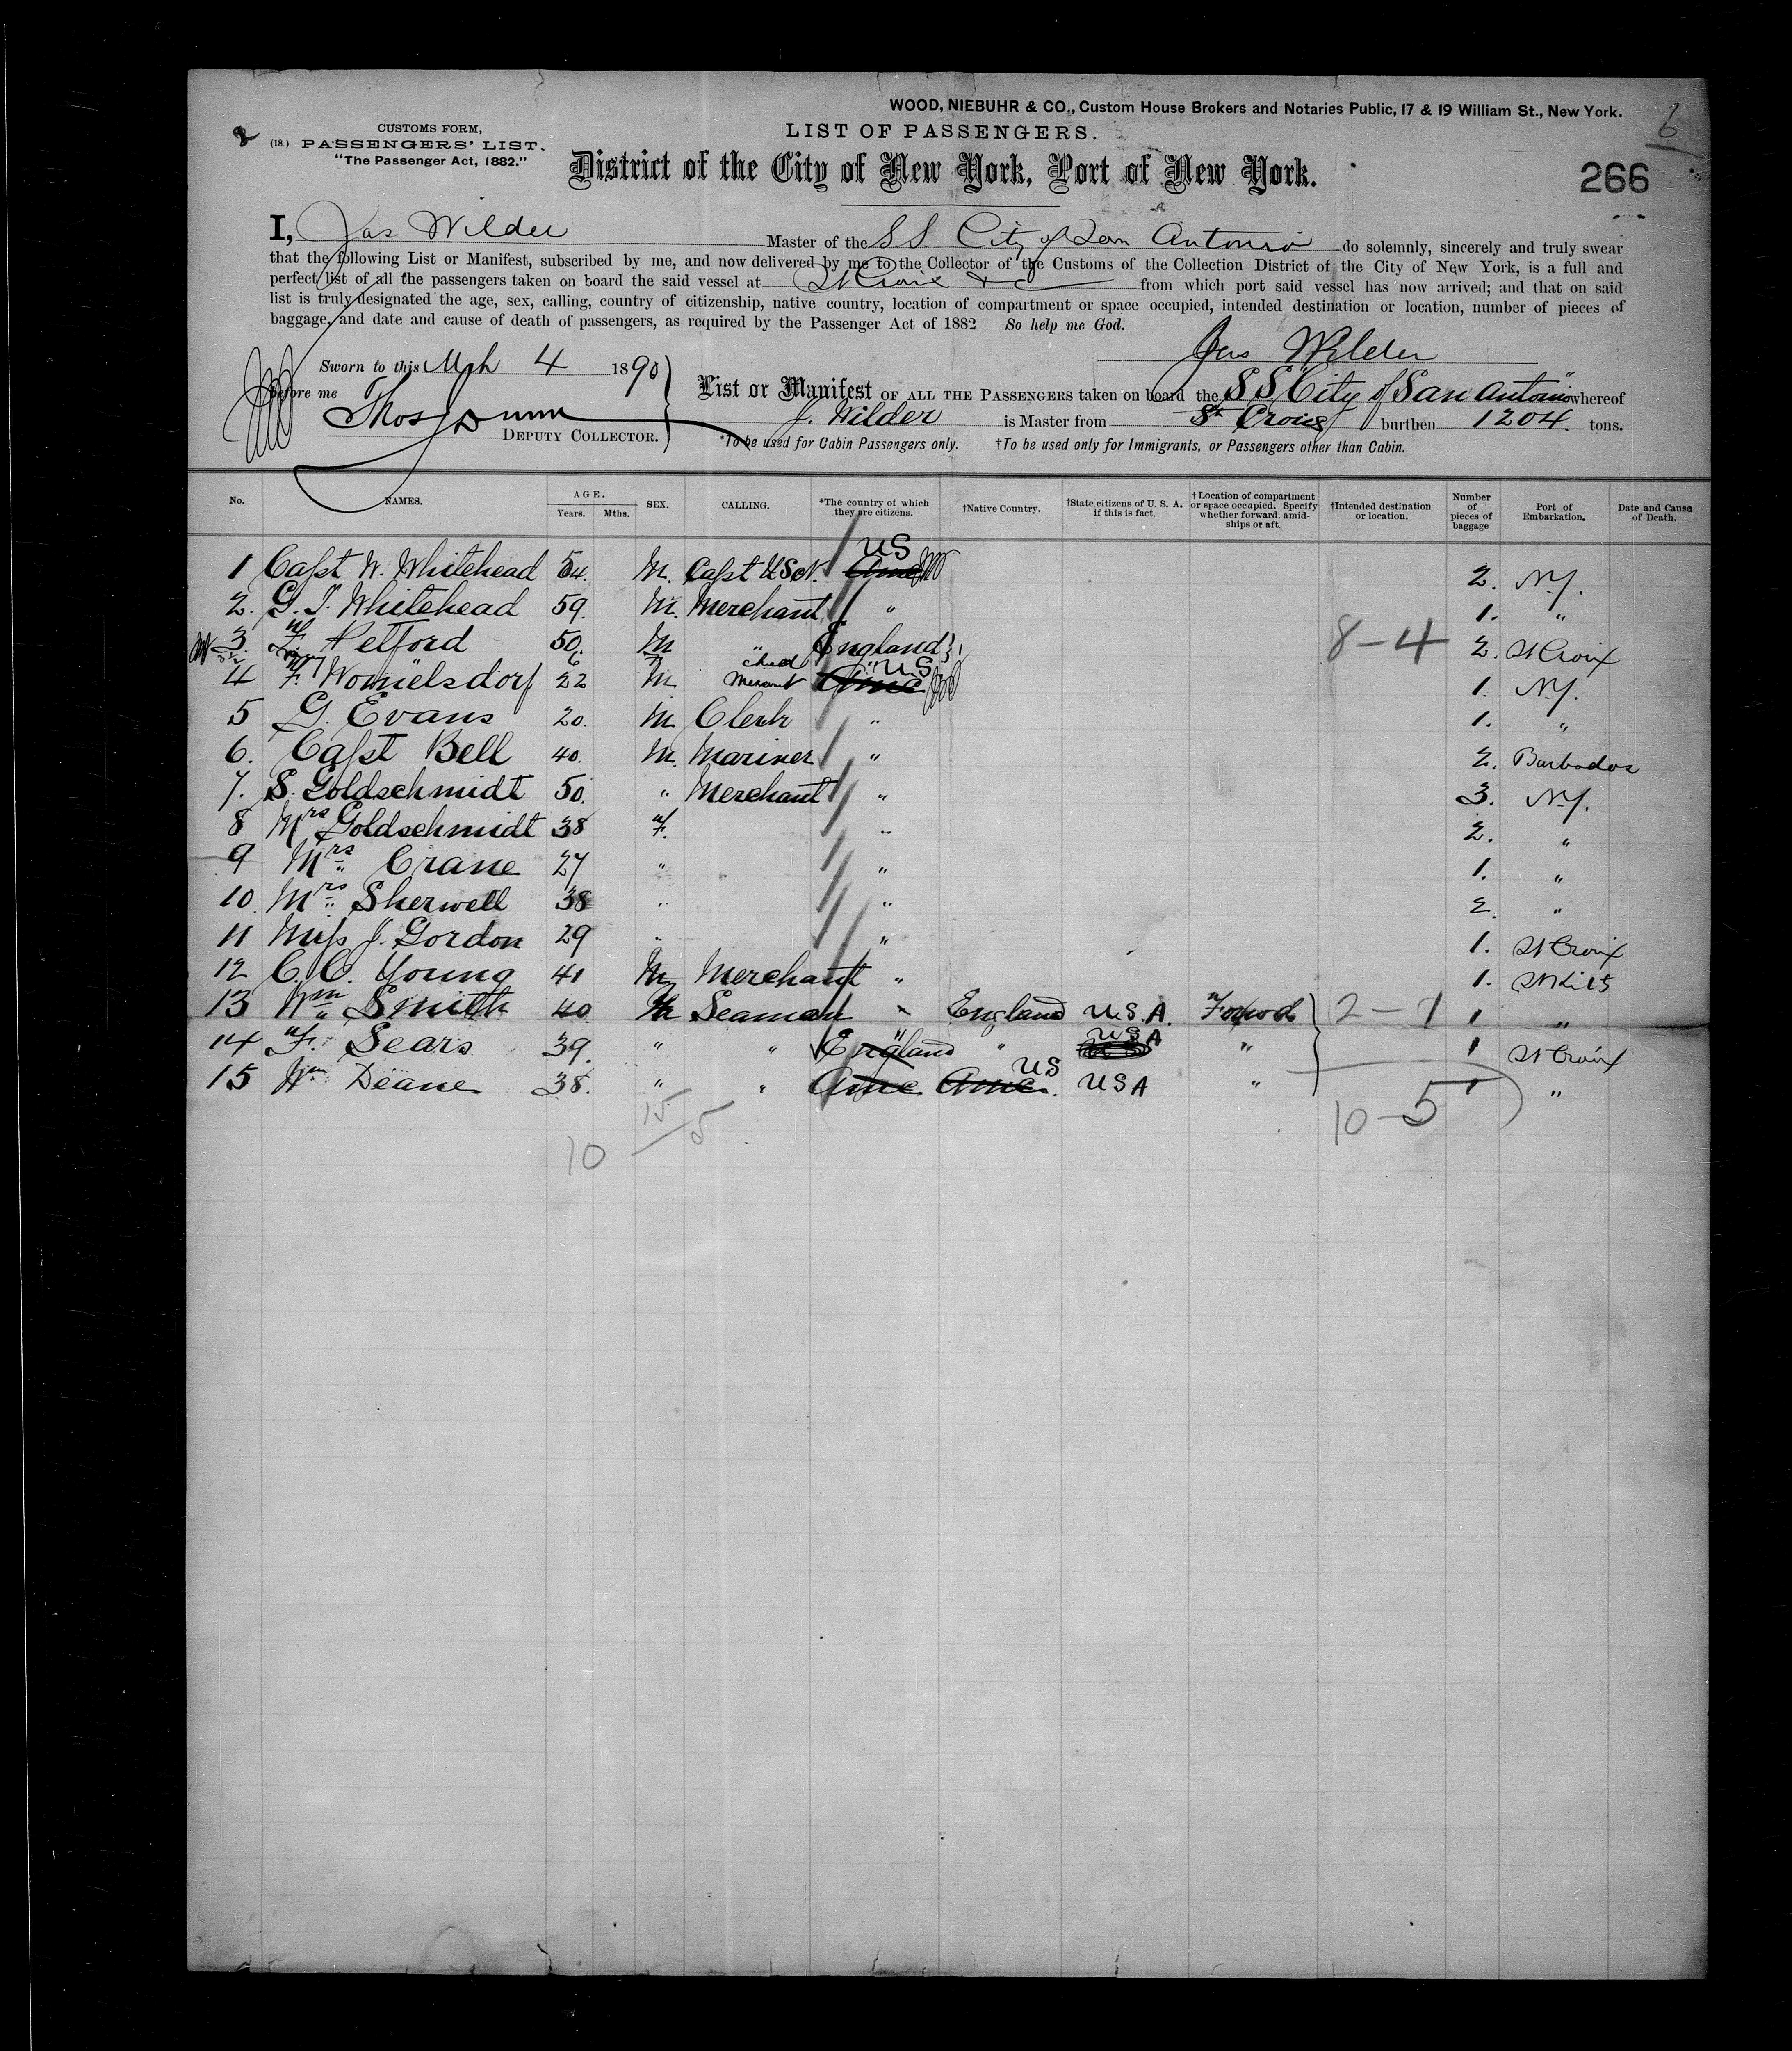 WOOD, NIEBUHR & CO., Custom House Brokers and Notaries Public, 17 & 19 William St., New York.
6
CUSTOMS FORM,
LIST OF PASSENGERS.
(18.) PASSENGERS' LIST.
"The Passenger Act, 1882."
District of the City of New York, Port of New York.
266
I, Jas Wilder Master of the S.S. City of San Antonio do solemnly, sincerely and truly swear
that the following List or Manifest, subscribed by me, and now delivered by me to the Collector of the Customs of the Collection District of the City of New York, is a full and
perfect list of all the passengers taken on board the said vessel at St Croix &c from which port said vessel has now arrived; and that on said
list is truly designated the age, sex, calling, country of citizenship, native country, location of compartment or space occupied, intended destination or location, number of pieces of
baggage, and date and cause of death of passengers, as required by the Passenger Act of 1882 So help me God.
Jas Wilder
Sworn to this Mch 4 1890
before me
Thos Dunn
DEPUTY COLLECTOR.
List or Manifest OF ALL THE PASSENGERS taken on board the SS City of San Antonio whereof
J. Wilder is Master from St Croix burthen 1204 tons.
*To be used for Cabin Passengers only. †To be used only for Immigrants, or Passengers other than Cabin.
No. NAMES. AGE. Years. Mths. SEX. CALLING. *The country of which they are citizens. †Native Country. †State citizens of U. S. A. if this is fact. †Location of compartment or space occupied. Specify whether forward, amidships or aft. †Intended destination or location. Number of pieces of baggage Port of Embarkation. Date and Cause of Death.
1 Capt W. Whitehead 54. M. Capt USN. Ame US 2. N.Y.
2. G. T. Whitehead 59. M. Merchant " 1. "
3. F. Petford 50. M " England 8-4 2. St Croix
6 Child "
4 F. Womelsdorf 22 M Merchant Ame US 1. N.Y.
5 G. Evans 20. M Clerk " 1. "
6. Capt Bell 40. M. Mariner " 2. Barbados
7. S. Goldschmidt 50. " Merchant " 3. N.Y.
8 Mrs Goldschmidt 38 F. " 2. "
9 Mrs Crane 27 " " 1. "
10. Mrs Sherwell 38 " " 2. "
11 Miss J. Gordon 29 " " 1. St Croix
12 C. C. Young 41 M Merchant " 1. St Kits
13 Wm Smith 40 M Seaman " England U.S.A. Forwd 2-1 1 "
14 F. Sears 39. " " England " USA " 1 St Croix
15 Wm Deane 38. " " Ame Ame. US USA " 1 "
10 15 5 10-5